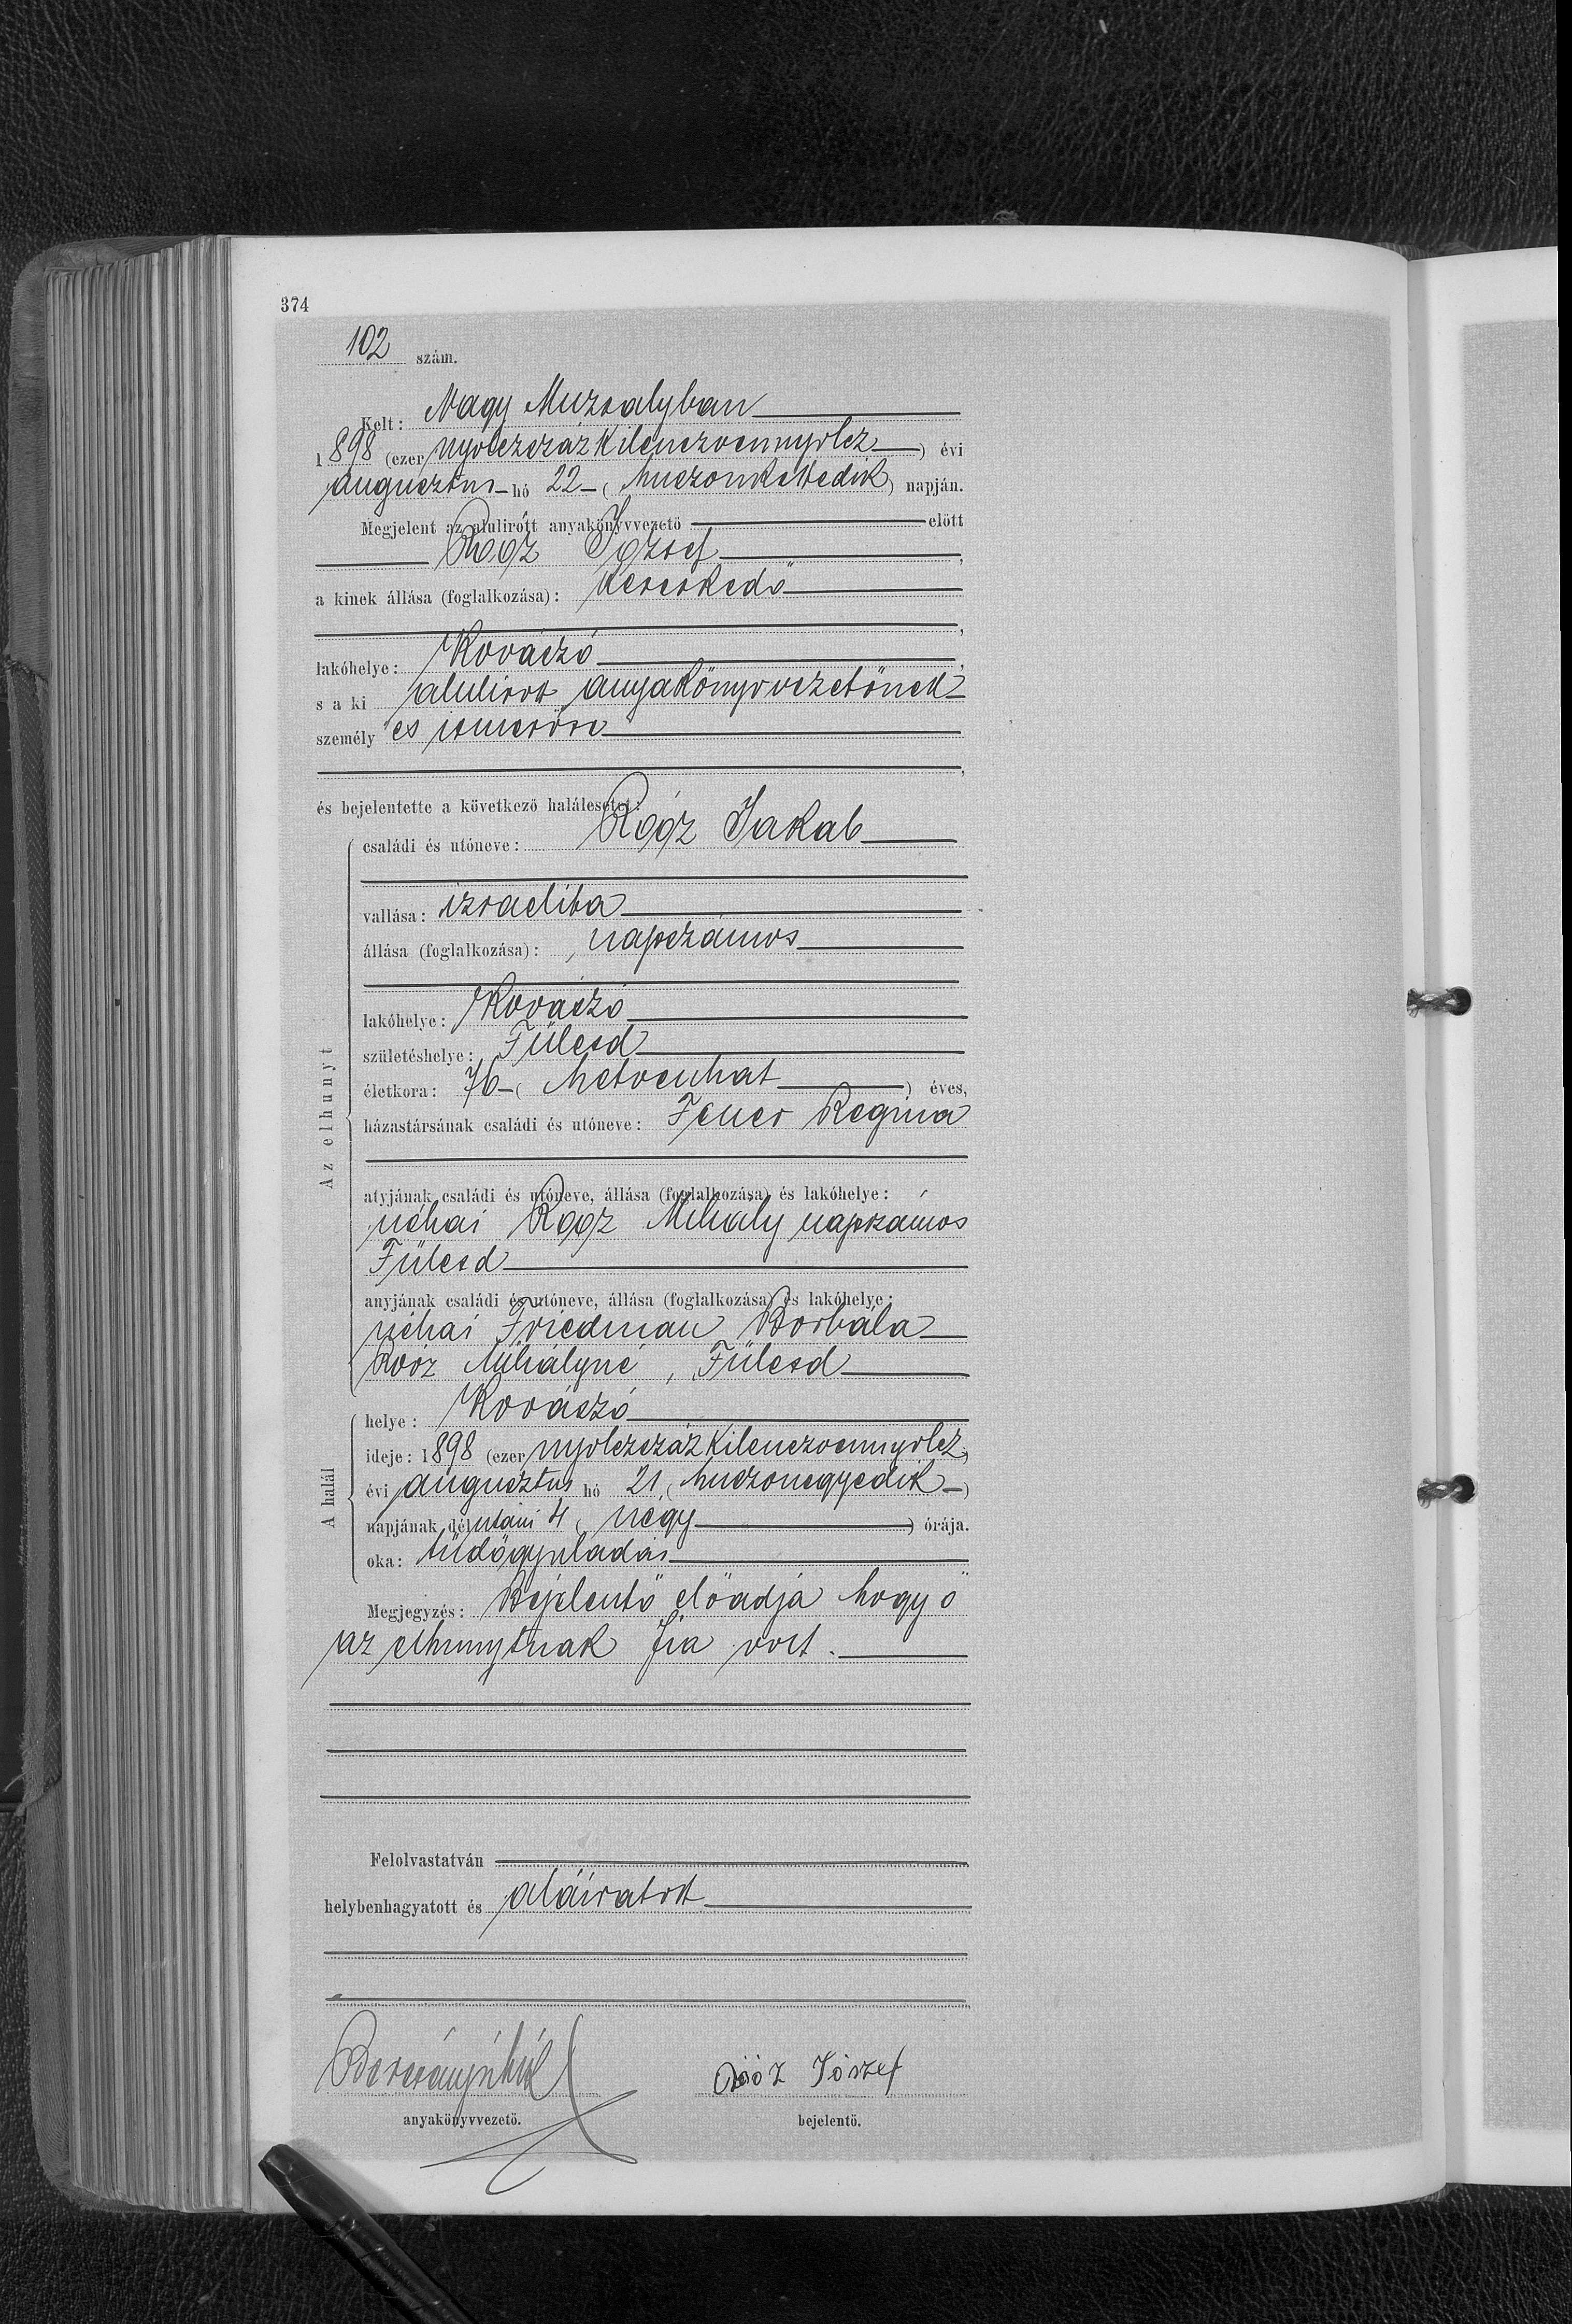 374
102 szám.
Kelt: Nagy Muzsalyban
1898 (ezer nyolczszáz kilenczvennyolcz) évi
augusztus hó 22 (huszonkettedik) napján.
Megjelent az alulirótt anyakönyvvezető előtt
Roóz József,
a kinek állása (foglalkozása): kereskedő
lakóhelye: Kovászó,
s a ki alulirott anyakönyvvezetőnek
személyes ismerőse
és bejelentette a következő halálesetet:
Az elhunyt
családi és utóneve: Roóz Jakab
vallása: izraelita
állása (foglalkozása): napszámos
lakóhelye: Kovászó
születéshelye: Fülesd
életkora: 76 (hetvenhat) éves,
házastársának családi és utóneve: Feuer Regina
atyjának családi és utóneve, állása (foglalkozása) és lakóhelye:
néhai Roóz Mihály napszámos
Fülesd
anyjának családi és utóneve, állása (foglalkozása) és lakóhelye:
néhai Friedman Borbála
Roóz Mihályné, Fülesd
A halál
helye: Kovászó
ideje: 1898 (ezer nyolczszáz kilenczvennyolcz)
évi augusztus hó 21 (huszonegyedik)
napjának délutáni 4 (négy) órája.
oka: tüdőgyuladás
Megjegyzés: Bejelentő előadja hogy ő
az elhunytnak fia volt.
Felolvastatván
helybenhagyatott és aláiratott
anyakönyvvezető.
Roóz József
bejelentő.